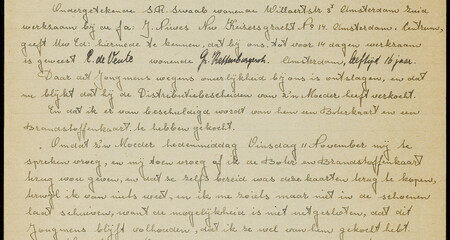 Ondergetekende S.R. Swaab wonende Wittaertstr 3² Amsterdam Zuid
werkzaam bij de fa: J. Nuves Nw Keizersgracht No 14. Amsterdam, Centrum,
geeft Uw Ed. hiermede te kennen, dat bij ons, tot voor 14 dagen werkzaam
is geweest E. de Vente wonende Amsterdam, leeftijd 16 jaar.
Daar dit Jongmens wegens oneerlijkheid bij ons is ontslagen, en dat
me blijkt dat hij de Distributiebescheiden van z'n Moeder heeft verkocht.
En dat ik er van beschuldigd wordt van hem een Boterkaart en een
Brandstoffenkaart te hebben gekocht.
Omdat z'n Moeder hedenmiddag Dinsdag 11 November mij te
spreken vroeg, en mij toen vroeg of ik de Boter en Brandstoffenkaart
terug wou geven, en dat ze zelfs bereid was deze kaarten terug te kopen,
terwijl ik van niets weet, en ik me zoiets maar niet in de schoenen
laat schuiven, want de mogelijkheid is niet uitgesloten, dat dit
Jongmens blijft volhouden, dat ik ze wel van hem gekocht hebt.